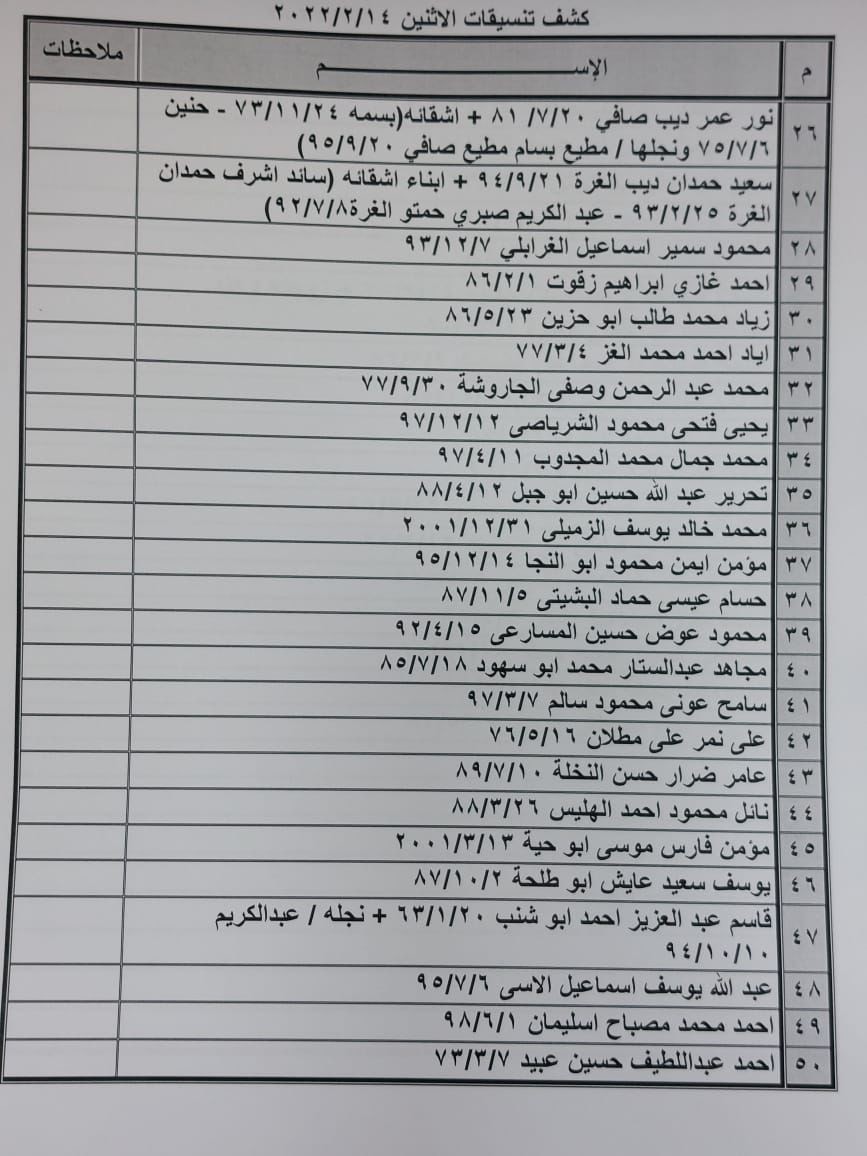 كشف تنسيقات الاثنين ٢٠٢٢/٢/١٤
م الإســـــم ملاحظات
٢٦ نور عمر ديب صافي ٨١/٧/٢٠ + اشقائه(بسمه ٧٣/١١/٢٤ - حنين
٧٥/٧/٦ ونجلها / مطيع بسام مطيع صافي ٩٥/٩/٢٠)
٢٧ سعيد حمدان ديب الغرة ٩٤/٩/٢١ + ابناء اشقائه (سائد اشرف حمدان
الغرة ٩٣/٢/٢٥ - عبد الكريم صبري حمتو الغرة٩٢/٧/٨)
٢٨ محمود سمير اسماعيل الغرابلي ٩٣/١٢/٧
٢٩ احمد غازي ابراهيم زقوت ٨٦/٢/١
٣٠ زياد محمد طالب ابو حزين ٨٦/٥/٢٣
٣١ اياد احمد محمد الغز ٧٧/٣/٤
٣٢ محمد عبد الرحمن وصفى الجاروشة ٧٧/٩/٣٠
٣٣ يحيى فتحى محمود الشرياصى ٩٧/١٢/١٢
٣٤ محمد جمال محمد المجدوب ٩٧/٤/١١
٣٥ تحرير عبد الله حسين ابو جبل ٨٨/٤/١٢
٣٦ محمد خالد يوسف الزميلى ٢٠٠١/١٢/٣١
٣٧ مؤمن ايمن محمود ابو النجا ٩٥/١٢/١٤
٣٨ حسام عيسى حماد البشيتى ٨٧/١١/٥
٣٩ محمود عوض حسين المسارعى ٩٢/٤/١٥
٤٠ مجاهد عبدالستار محمد ابو سهود ٨٥/٧/١٨
٤١ سامح عونى محمود سالم ٩٧/٣/٧
٤٢ على نمر على مطلان ٧٦/٥/١٦
٤٣ عامر ضرار حسن النخلة ٨٩/٧/١٠
٤٤ نائل محمود احمد الهليس ٨٨/٣/٢٦
٤٥ مؤمن فارس موسى ابو حية ٢٠٠١/٣/١٣
٤٦ يوسف سعيد عايش ابو طلحة ٨٧/١٠/٢
٤٧ قاسم عبد العزيز احمد ابو شنب ٦٣/١/٢٠ + نجله / عبدالكريم
٩٤/١٠/١٠
٤٨ عبد الله يوسف اسماعيل الاسى ٩٥/٧/٦
٤٩ احمد محمد مصباح اسليمان ٩٨/٦/١
٥٠ احمد عبداللطيف حسين عبيد ٧٣/٣/٧